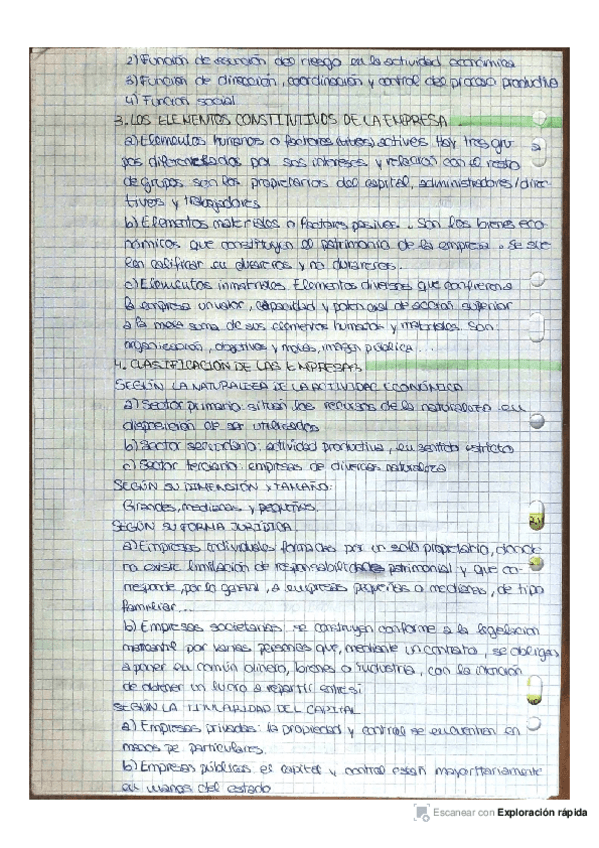 2) Función de asunción del riesgo en la actividad económica
3) Función de dirección, coordinación y control del proceso productivo
4) Función social
3. LOS ELEMENTOS CONSTITUTIVOS DE LA EMPRESA
a) Elementos humanos o factores activos. Hay tres gru
pos diferenciados por sus intereses y relación con el resto
de grupos son los propietarios del capital, administradores/direc
tivos y trabajadores
b) Elementos materiales o factores pasivos. Son los bienes eco
nómicos que constituyen el patrimonio de la empresa. Se sue
len calificar en duraderos y no duraderos.
c) Elementos inmateriales. Elementos diversos que confieren a
la empresa un valor, capacidad y potencial de acción superior
a la mera suma de sus elementos humanos y materiales. Son:
organización, objetivos y , imagen pública...
4. CLASIFICACIÓN DE LAS EMPRESAS
SEGÚN LA NATURALEZA DE LA ACTIVIDAD ECONÓMICA
a) Sector primario: sitúan los recursos de la naturaleza en
disposición de ser utilizados
b) Sector secundario: actividad productiva, en sentido estricto
c) Sector terciario: empresas de diversa naturaleza
SEGÚN SU DIMENSIÓN Y TAMAÑO:
Grandes, medianas y pequeñas.
SEGÚN SU FORMA JURÍDICA.
a) Empresas individuales formadas por un solo propietario, donde
no existe limitación de responsabilidades patrimonial y que co-
rresponde, por lo general, a empresas pequeñas o medianas, de tipo
familiar...
b) Empresas societarias: se construyen conforme a la legislación
mercantil por varias personas que, mediante un contrato, se obligan
a poner en común dinero, bienes o industria, con la intención
de obtener un lucro a repartir entre sí
SEGÚN LA TITULARIDAD DEL CAPITAL
a) Empresas privadas: la propiedad y control se encuentren en
manos de particulares.
b) Empresas públicas: el capital y control están mayoritariamente
en manos del estado
Escanear con Exploración rápida